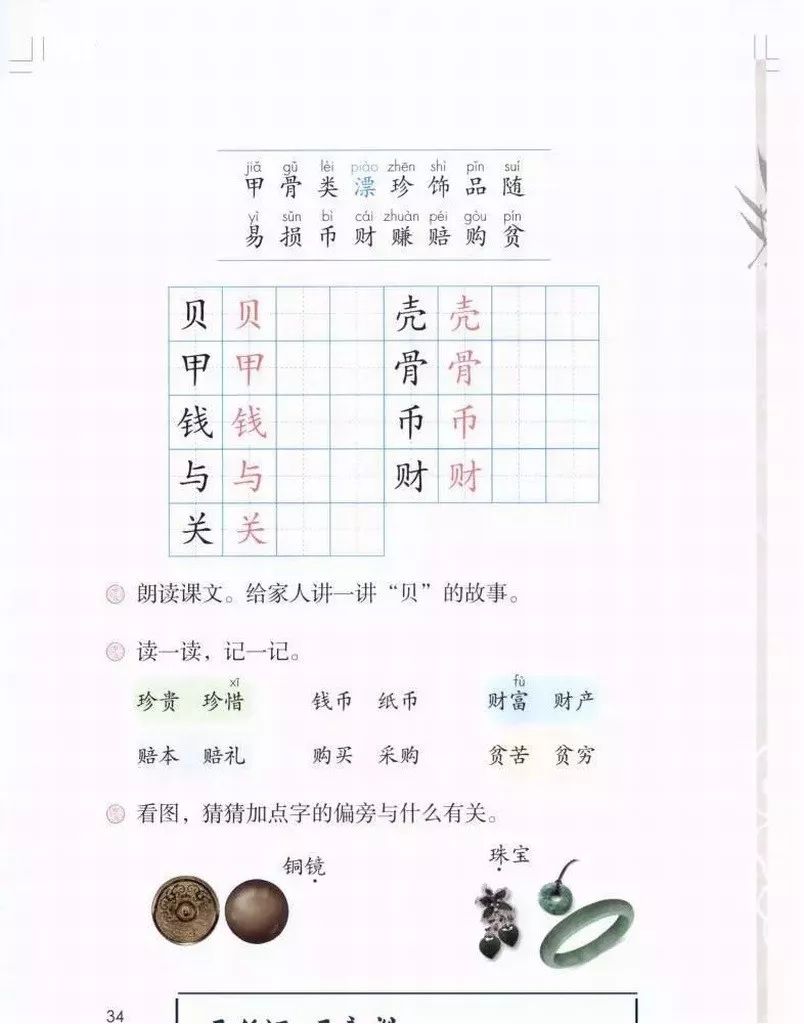 jiǎ gǔ lèi piào zhēn shì pǐn suí
甲 骨 类 漂 珍 饰 品 随
yì sǔn bì cái zhuàn péi gòu pín
易 损 币 财 赚 赔 购 贫
贝 贝 壳 壳
甲 甲 骨 骨
钱 钱 币 币
与 与 财 财
关 关
朗读课文。给家人讲一讲“贝”的故事。
读一读，记一记。
xī fù
珍贵 珍惜 钱币 纸币 财富 财产
赔本 赔礼 购买 采购 贫苦 贫穷
看图，猜猜加点字的偏旁与什么有关。
铜镜 珠宝
34